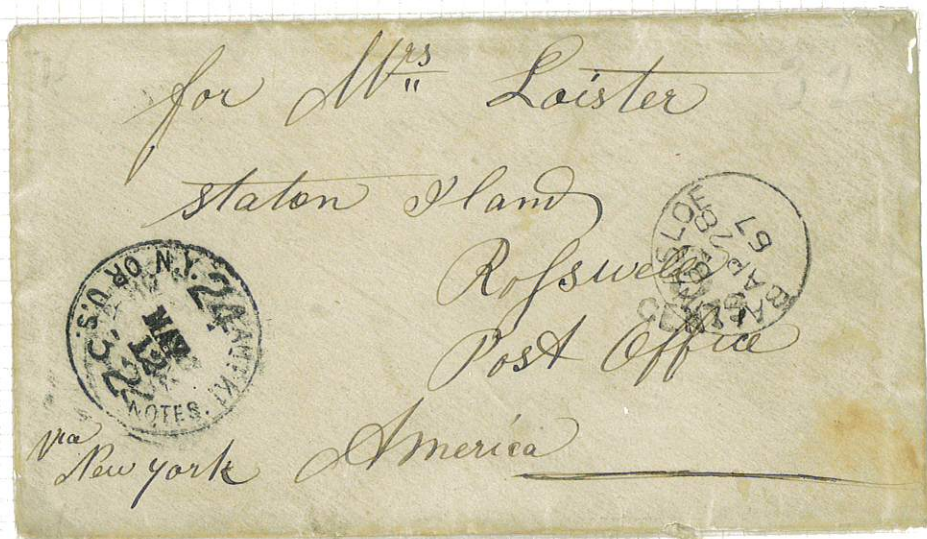 for Mrs Loister
staton Iland
Rosswell
Post Office
America
via
New york
N.Y. AM. PKT.
24
OR U.S.
NOTES.
67